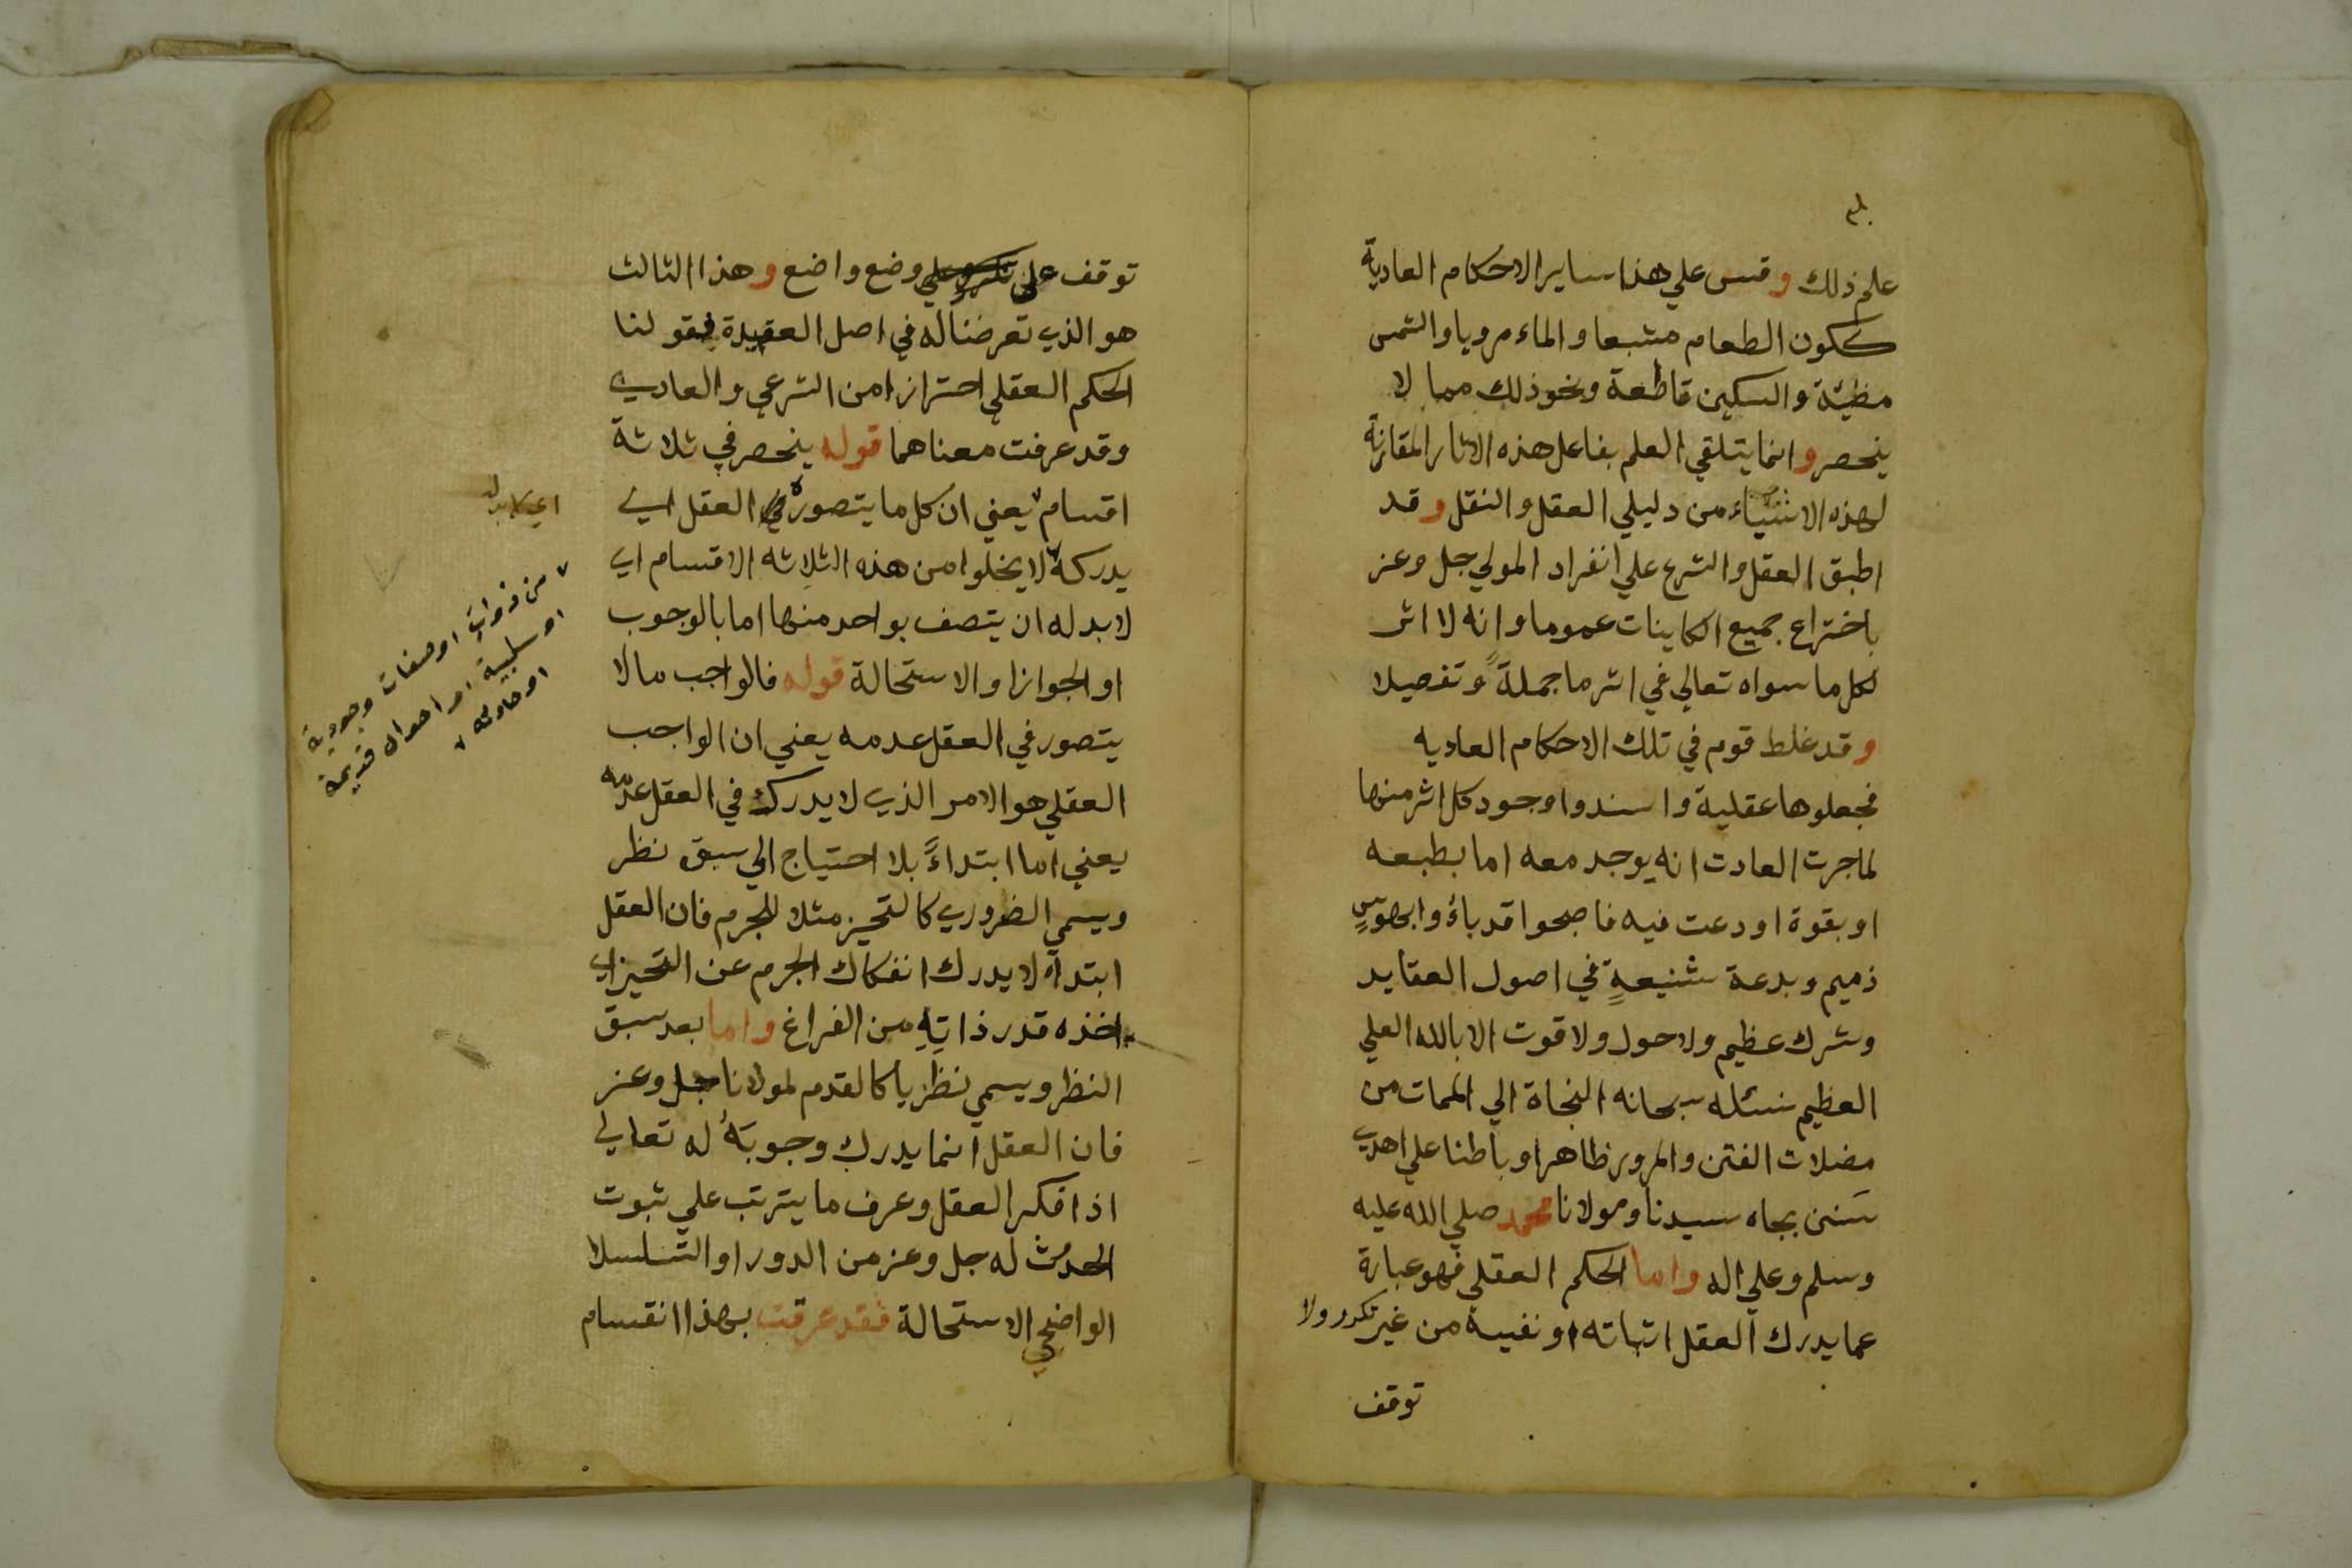 علم ذلك وقس علي هذا ساير الاحكام العادية
ككون الطعام مشبعا والماء مرويا والشمس
مظيئة والسكين قاطعة ونحو ذلك مما لا
ينحصر وانما يتلقي العلم بفاعل هذه الاثار المقارنة
لهذه الاشياء من دليلي العقل والنقل وقد
اطبق العقل والشرع علي انفراد المولي جل وعز
باختراع جميع الكاينات عموما وانه لا اثر
لكل ما سواه تعالي في اثر ما جملةً وتفصيلا
وقد غلط قوم في تلك الاحكام العاديه
فجعلوها عقلية واسندوا وجود كل اثر منها
لما جرت العادت انه يوجد معه اما بطبعه
او بقوة اودعت فيه فاصبحوا قد باؤا بهوسٍ
ذميم وبدعة شنيعةٍ في اصول العقايد
وشرك عظيم ولا حول ولا قوت الا بالله العلي
العظيم نسئله سبحانه النجاة الي الممات من
مضلات الفتن والمرور ظاهرا وباطنا علي اهدي
سَنن بجاه سيدنا ومولانا محمد صلي الله عليه
وسلم وعلي اله واما الحكم العقلي فهو عبارة
عما يدرك العقل اثباته او نفيه من غير تكرر ولا
توقف
توقف على وضع واضع وهذا الثالث
هو الذي تعرضنا له في اصل العقيدة فقولنا
الحكم العقلي احترازا من الشرعي والعادي
وقد عرفت معناهما قوله ينحصر في ثلاثة
اقسام يعني ان كل ما يتصوره العقل اي
يدركه لا يخلوا من هذه الثلاثه الاقسام اي
لا بد له ان يتصف بواحد منها اما بالوجوب
او الجواز او الاستحالة قوله فالواجب مالا
يتصور في العقل عدمه يعني ان الواجب
العقلي هو الامر الذي لا يدرك في العقل عدمه
يعني اما ابتداءً بلا احتياج الي سبق نظر
ويسمي الضروري كالتحيز مثلا للجرم فان العقل
ابتداء لا يدرك انفكاك الجرم عن التحيز اي
اخذه قدر ذاتِهِ من الفراغ واما بعد سبق
النظر ويسمي نظريا كالقدم لمولانا جل وعز
فان العقل انما يدرك وجوبَهُ له تعالي
اذا فكر العقل وعرف ما يترتب علي ثبوت
الحدوث له جل وعز من الدور او التسلسلا
الواضحي الاستحالة فقد عرفت بهذا انقسام
من ذوات او صفات وجودية
او سلبية او احوال قديمة
او حادثه